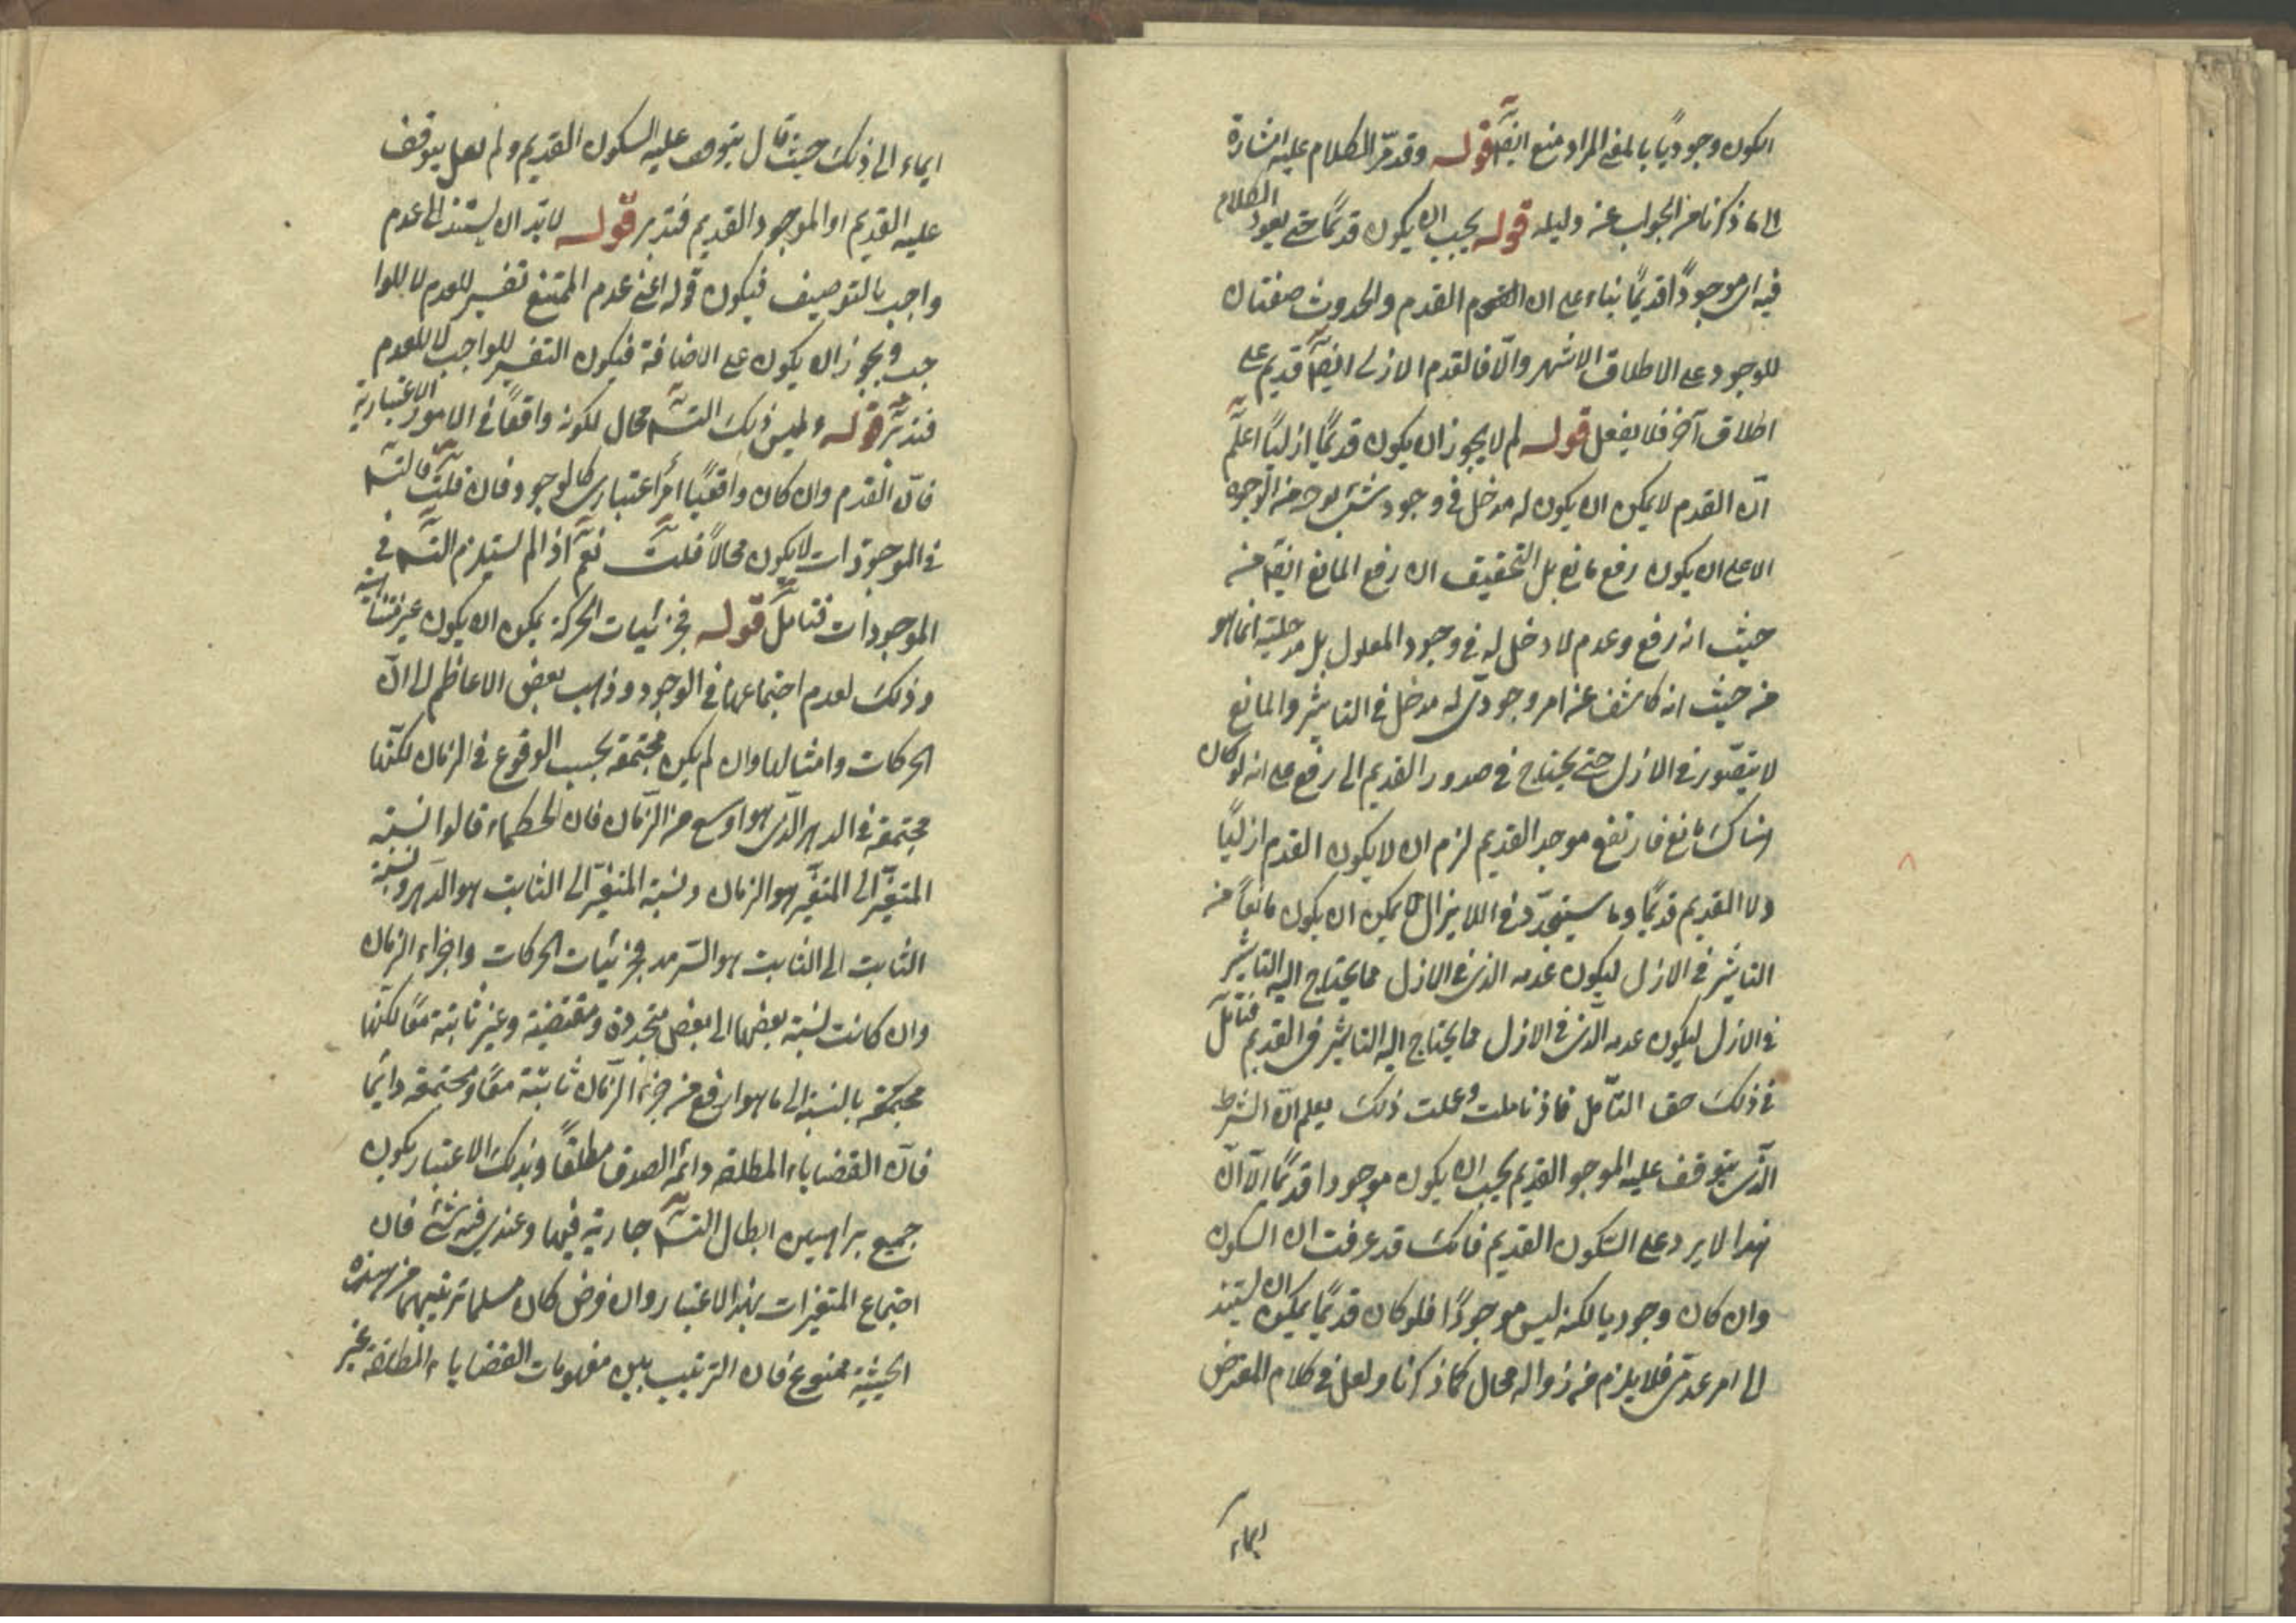 الكون وجوديًا بالمعنى المراد منع ايضًا قوله وقد مرّ الكلام عليه اشارة
الى ما ذكرنا من الجواب عن دليله قوله يجب ان يكون قديمًا حتى يعود الكلام
فيه اى موجودًا قديمًا بناء على ان القدم والحدوث صفتان
للوجود على الاطلاق الاشهر والّا فالقدم الازلى ايضًا قديم على
اطلاق آخر فلا يغفل قوله لم لا يجوز ان يكون قديمًا ازليًا اعلم
انّ القدم لا يمكن ان يكون له مدخل فى وجود شئ بوجه من الوجوه
الا على ان يكون رفع مانع بل التحقيق ان رفع المانع ايضًا من
حيث انه رفع وعدم لا دخل له فى وجود المعلول بل مدخليته انما هو
من حيث انه كاشف عن امر وجودىّ له مدخل فى التاثير والمانع
لا يتصّور فى الازل حتى يحتاج فى صدور القديم الى رفع على انه لو كان
هناك مانع فارتفع موجد القديم لزم ان لا يكون القدم ازليًا
ولا القديم قديمًا وما سيتجدّد فى اللايزال لا يمكن ان يكون مانعًا من
التاثير فى الازل ليكون عدمه الذى فى الازل مما يحتاج اليه التاثير
فى الازل ليكون عدمه الّذى فى الازل مما يحتاج اليه التاثير فى القديم فتامّل
فى ذلك حق التأمّل فاذ تاملت وعلمت ذلك يعلم انّ الشرط
الّذى يتوقف عليه الموجو القديم يجب ان يكون موجودا قديمًا الّا انّ
هذا لا يرد على السّكون القديم فانك قد عرفت ان السكون
وان كان وجوديا لكنه ليس موجودًا فلو كان قديمًا يمكن ان يستند
الى امر عدمّى فلا يلزم من زواله محال كما ذكرنا ولعل فى كلام المعترض
ايماء
ايماء الى ذلك حيث قال يتوقف عليه السكون القديم ولم يقل يتوقف
عليه القديم او الموجود القديم فتدبر قوله لا بدّ ان يستند الى عدم
واجب بالتوصيف فيكون قوله اعنى عدم الممتنع تفسير للعدم لا للوا
جب ويجوز ان يكون على الاضافة فيكون التفسير للواجب لا للعدم
فتدبّر قوله وليس ذلك التسّه محال لكونه واقعًا فى الامور الاعتبارية
فانّ القدم وان كان واقعيًا امرًا اعتبارى كالوجود فان قلت فالتسّه
فى الموجودات لا يكون محالًا قلت نعم اذا لم يستلزم التسّه فى
الموجودات فتامّل قوله فجزئيات الحركة يمكن ان يكون غير متناهية
وذلك لعدم اجتماعها فى الوجود وذهب بعض الاعاظم الى انّ
الحركات وامثالها وان لم يكن مجتمعة بحسب الوقوع فى الزمان لكنّها
مجتمعة فى الدهر الّذى هو اوسع من الزّمان فان الحكماء قالوا نسبة
المتغيّر الى المتغيّر هو الزمان ونسبة المتغيّر الى الثابت هو الدّهر ونسبة
الثابت الى الثابت هو السّرمد فجزئيات الحركات واجزاء الزمان
وان كانت نسبة بعضها الى بعض متجددة ومقتضية وغير ثابتة معًا لكنّها
مجتمعة بالنسبة الى ما هو ارفع من جزء الزّمان ثابتة معًا ومجتمعة دائمًا
فانّ القضاياء المطلقة دائمة الصدق مطلقًا وبذلك الاعتبار يكون
جميع براهين ابطال التسّه جارية فيها وعندى فيه شئ فان
اجتماع المتغيرات بهذا الاعتبار وان فرض كان مسلما ترتيبهما من هذه
الحيثية ممنوع فان الترتيب بين مفهومات القضاياء المطلقة غير